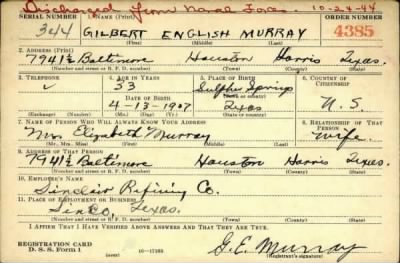 Discharged from Naval Forces 10-24-44
SERIAL NUMBER 1. NAME (Print) ORDER NUMBER
344 GILBERT ENGLISH MURRAY 4385
(First) (Middle) (Last)
2. ADDRESS (Print)
7941½ Baltimore Houston Harris Texas.
(Number and street or R. F. D. number) (Town) (County) (State)
3. TELEPHONE 4. AGE IN YEARS 5. PLACE OF BIRTH 6. COUNTRY OF CITIZENSHIP
33 Sulphur Springs
DATE OF BIRTH (Town or county)
4-13-1907 Texas U.S.
(Exchange) (Number) (Mo.) (Day) (Yr.) (State or country)
7. NAME OF PERSON WHO WILL ALWAYS KNOW YOUR ADDRESS 8. RELATIONSHIP OF THAT PERSON
Mrs. Elizabeth Murray Wife.
(Mr., Mrs., Miss) (First) (Middle) (Last)
9. ADDRESS OF THAT PERSON
7941½ Baltimore Houston Harris Texas.
(Number and street or R. F. D. number) (Town) (County) (State)
10. EMPLOYER'S NAME
Sinclair Refining Co.
11. PLACE OF EMPLOYMENT OR BUSINESS
Sinco, Texas.
(Number and street or R. F. D. number) (Town) (County) (State)
I AFFIRM THAT I HAVE VERIFIED ABOVE ANSWERS AND THAT THEY ARE TRUE.
REGISTRATION CARD
D. S. S. Form 1 16-17105 G. E. Murray
(over) (Registrant's signature)